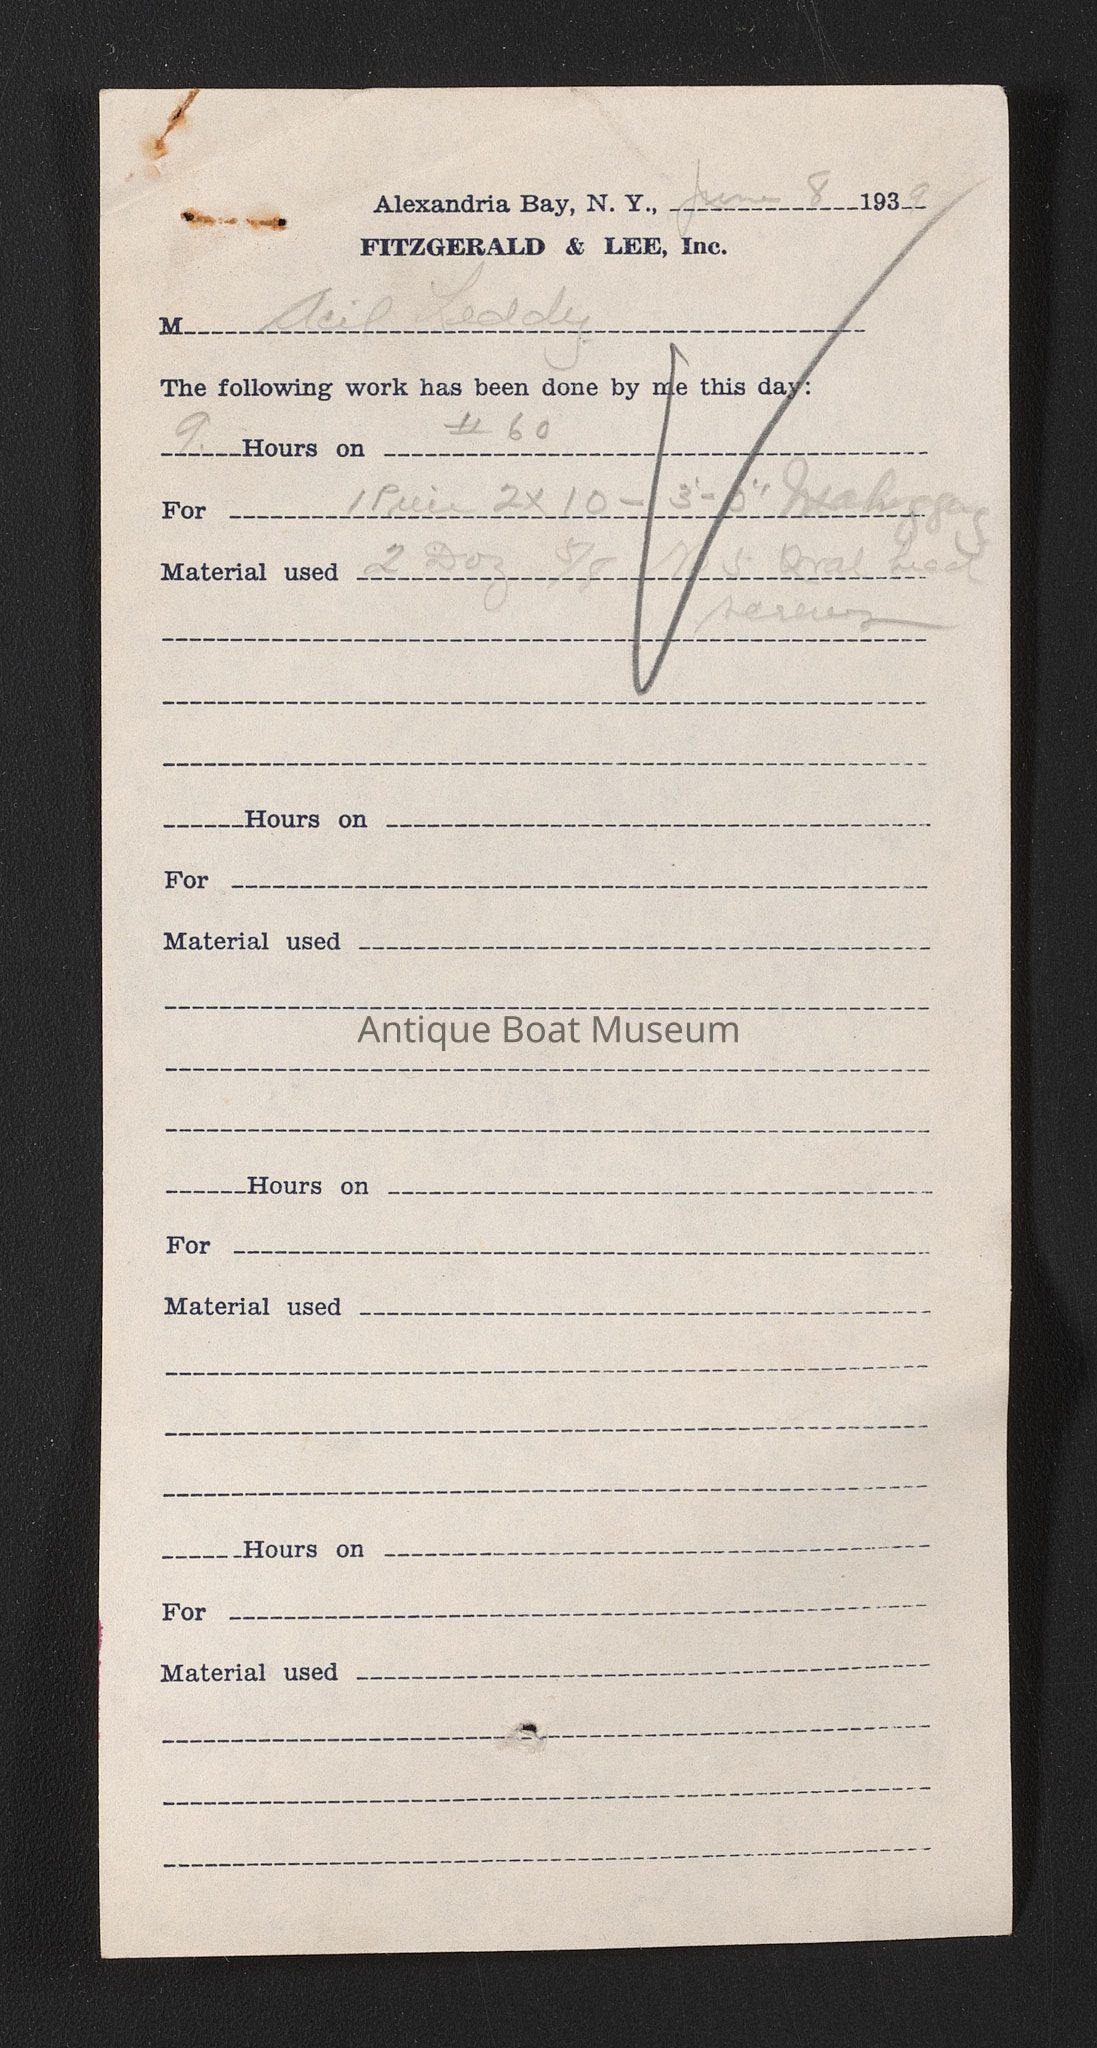 Alexandria Bay, N. Y., June 8 1939
FITZGERALD & LEE, Inc.
M Leddy
The following work has been done by me this day:
9. Hours on # 60
For 1 Piece 2 x 10 - 3'-0" Mahoggany
Material used 2 Doz 5/8 No 5 Oval head
screws
Hours on
For
Material used
Antique Boat Museum
Hours on
For
Material used
Hours on
For
Material used